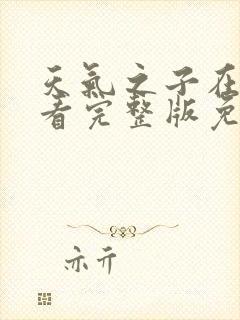 天氣之子在
看完整版免
亦亓